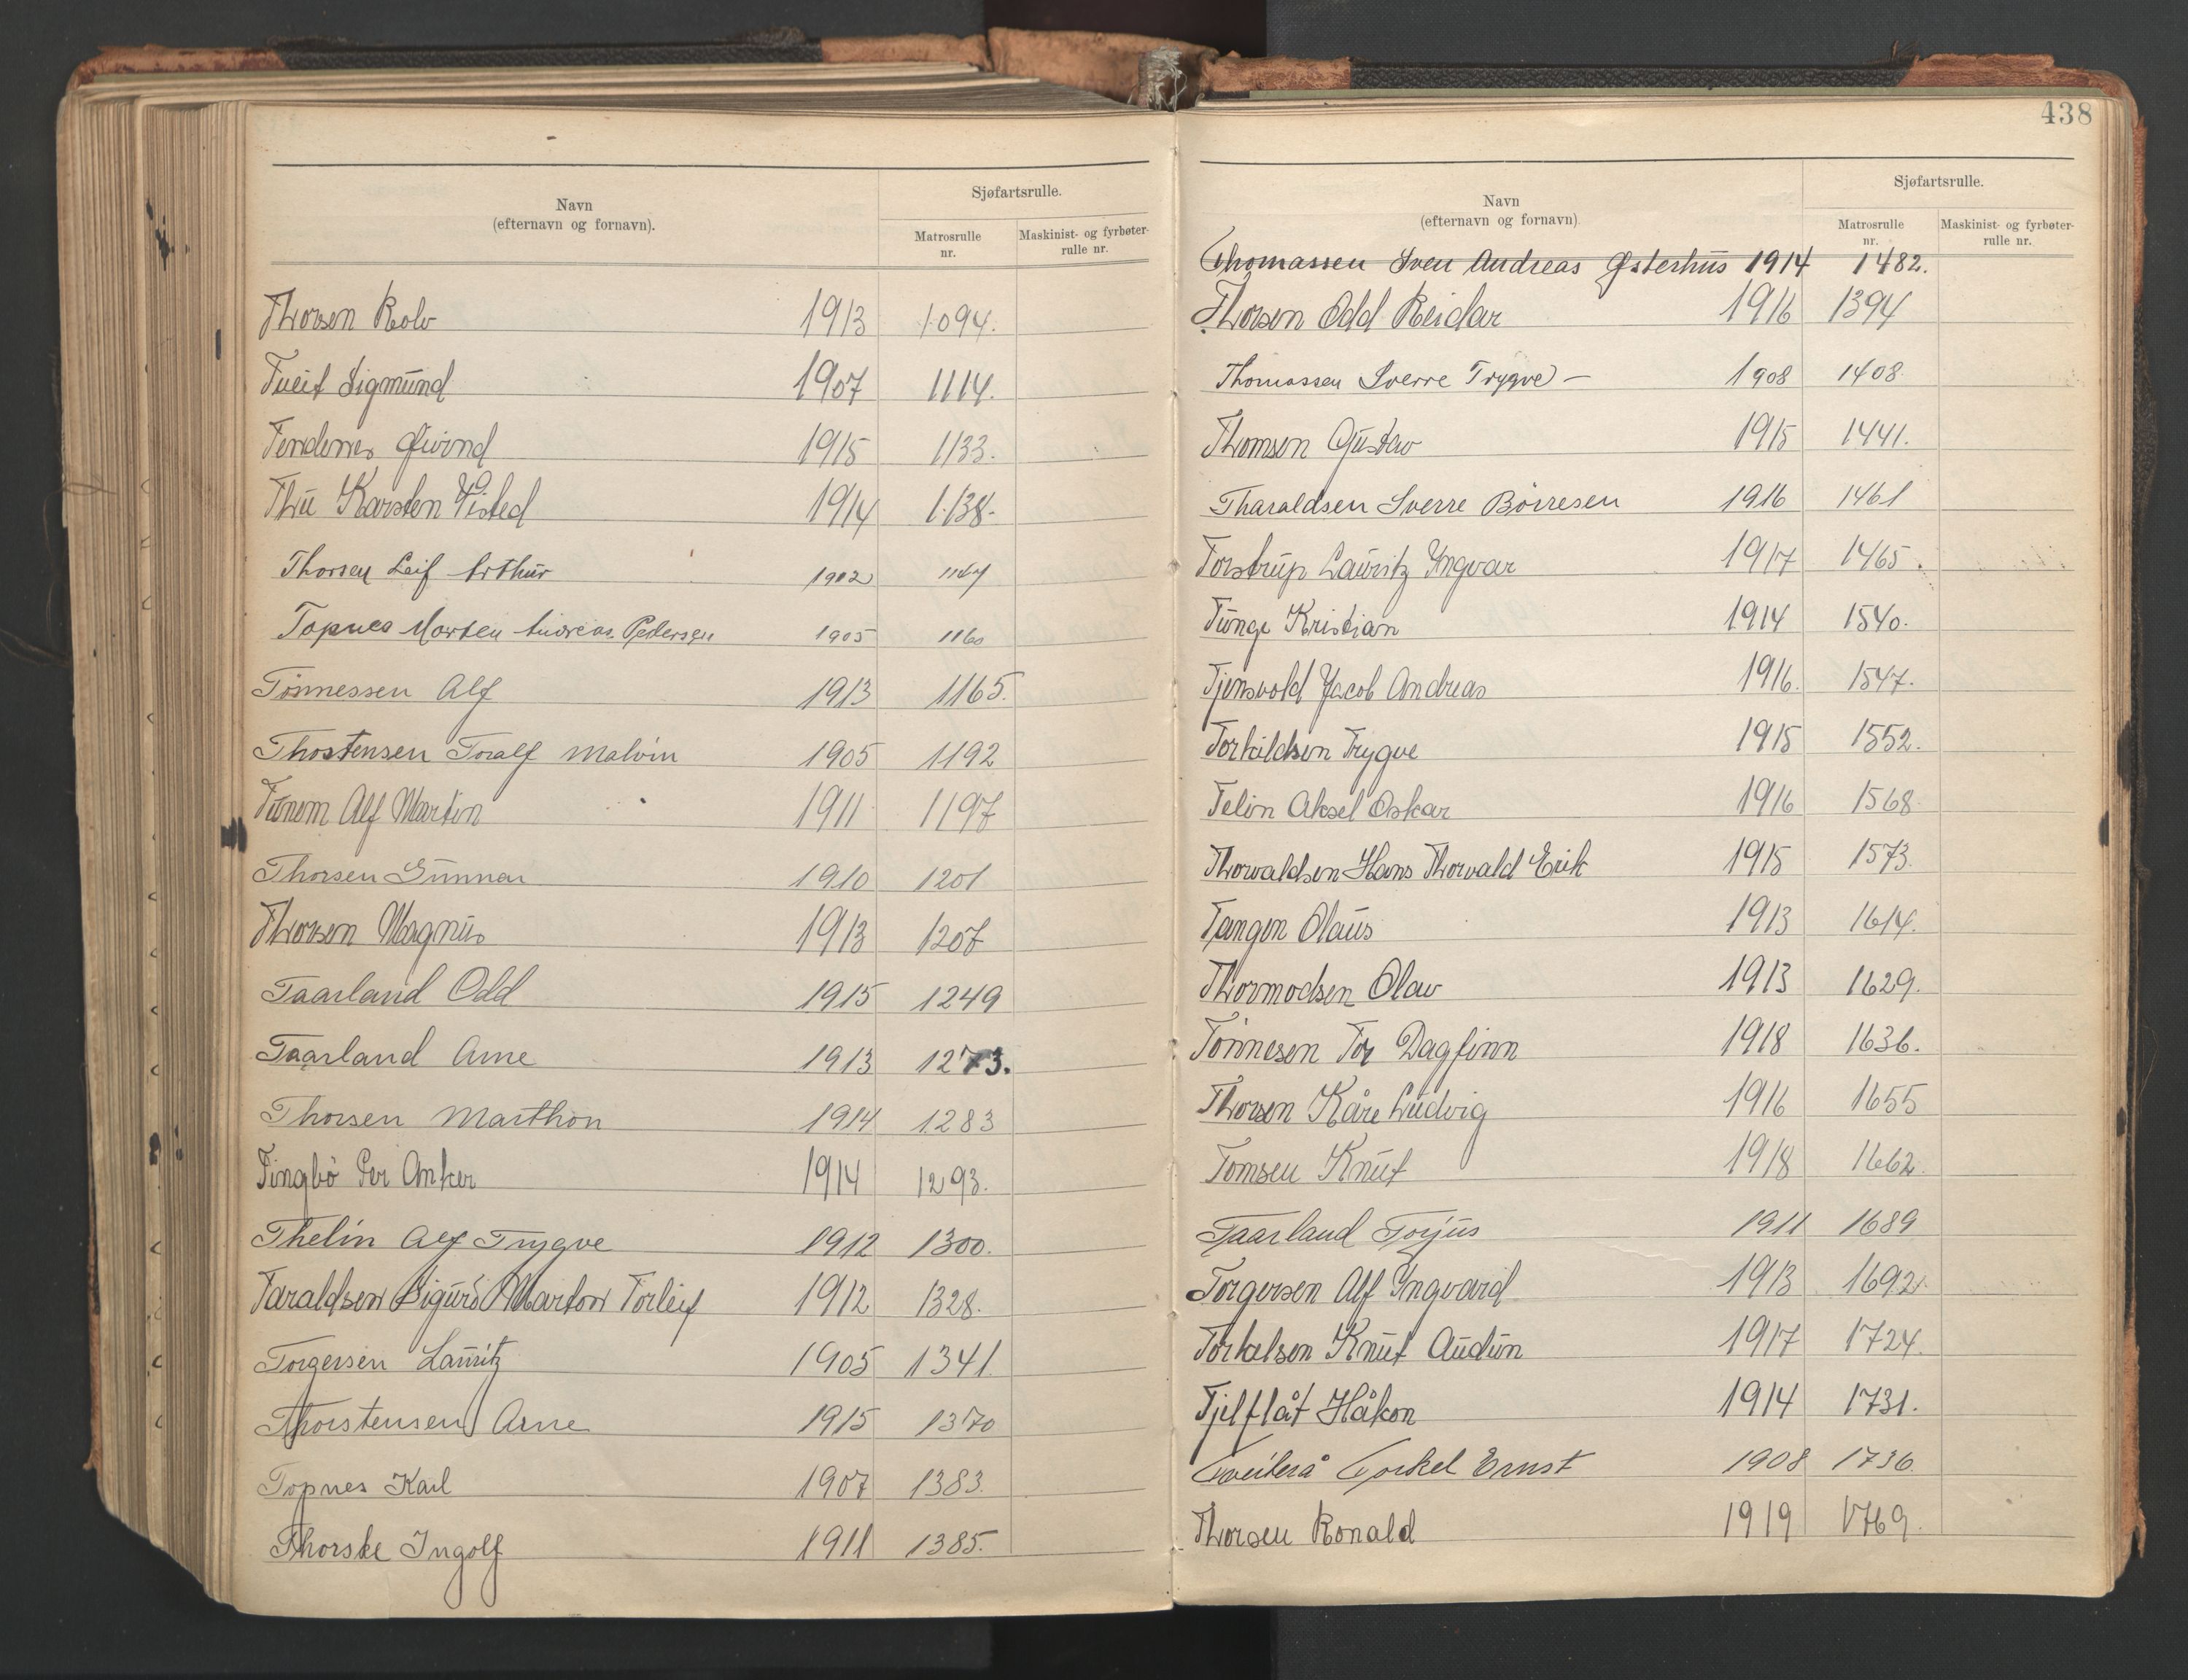 Navn
(efternavn og fornavn).
Sjøfartsrulle.
Matrosrulle
nr.
Maskinist- og fyrbøter-
rulle nr.
Thorsen Rolv 1913 1094.
Tueit Sigmund 1907 1114.
Tendenes Øivind 1915 1133.
Thu Karsten Visted 1914 1138.
Thorsen Leif Arthur 1902
Topnes Morten Andreas Pedersen 1905 1160
Tönnessen Alf 1913 1165.
Thostensen Toralf Malvin 1905 1192
Tunem Alf Martin 1911 1197
Thorsen Gunnar 1910 1201
Thorsen Magnus 1913 1207
Taarland Odd 1915 1249
Taarland Arne 1913 1273.
Thorsen Marthon 1914 1283
Tingbö Per Anker 1914 1293.
Thelin Alf Trygve 1912 1300.
Taraldsen Sigurd Marton Torleif 1912 1328.
Torgersen Lauritz 1905 1341.
Thorstensen Arne 1915 1370
Topnes Karl 1907 1383.
Thorske Ingolf 1911 1385.
438
Navn
(efternavn og fornavn)
Sjøfartsrulle.
Matrosrulle
nr.
Maskinist- og fyrbøter-
rulle nr.
Thomassen Sven Andreas Østerhus 1914 1482.
Thorsen Odd Reidar 1916 1394
Thomassen Sverre Trygve – 1908 1408.
Thomsen Gustav 1915 1441.
Tharaldsen Sverre Börresen 1916 1461
Torstrup Lauritz Yngvar 1917 1465.
Tunge Kristian 1914 1540.
Tjensvold Jacob Andreas 1916. 1547.
Torkildsen Trygve 1915 1552.
Telin Aksel Oskar 1916 1568
Thorvaldsen Hans Thorvald Erik 1915 1573.
Tangen Olaus 1913 1614.
Thormodsen Olav 1913 1629.
Tönnesen Tor Dagfinn 1918 1636.
Thorsen Kåre Ludvig 1916 1655
Tomsen Knut 1918 1662.
Taarland Torjus 1911 1689
Torgersen Alf Yngvard 1913 1692.
Torkelsen Knut Audun 1917 1724.
Tjelflåt Håkon 1914 1731.
Torkel Ernst 1908 1736.
Thorsen Ronald 1919 1769.